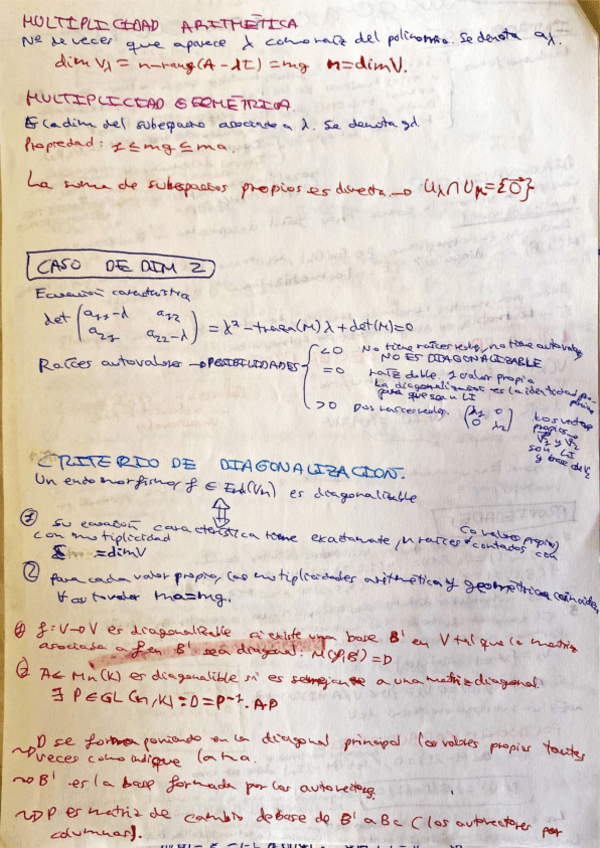 MULTIPLICIDAD ARITMÉTICA
Nº de veces que aparece λ como raíz del polinomio. Se denota aλ.
dim Vλ = n-rang(A - λI) = mg n=dimV.
MULTIPLICIDAD GEOMÉTRICA
Es la dim del subespacio asociado a λ. Se denota gλ.
Propiedad: 1 ≤ mg ≤ ma.
La suma de subespacios propios es directa. → Uλ ∩ Uμ = {0⃗}
CASO DE DIM 2
Ecuación característica
det (a11-λ a12
a21 a22-λ) = λ² - traza(M)λ + det(M) = 0
Raíces autovalores → POSIBILIDADES
<0 No tiene raíces reales, no tiene autovalores
NO ES DIAGONALIZABLE
=0 raíz doble. 1 valor propio
La diagonalización es la
para que sean LI
>0 Dos raíces reales. (λ1 0
0 λ2)
Los vectores
propios
v1 y v2
son LI
y base de V2
CRITERIO DE DIAGONALIZACION.
Un endomorfismo f ∈ End(Vn) es diagonalizable
① Su ecuación característica tiene exactamente, n raíces contados con
Co valores propios
con multiplicidad
Σ = dimV
② Para cada valor propio, las multiplicidades aritmética y geométrica coinciden
∀ autovalor ma=mg.
① f: V→V es diagonalizable si existe una base B' en V tal que la matriz
asociada a f en B' sea diagonal: M(f,B') = D
② A ∈ Mn(K) es diagonalible si es semejante a una matriz diagonal.
∃ P ∈ GL(n,K): D = P⁻¹·A·P
→ D se forma poniendo en la diagonal principal los valores propios tantas
veces como indique la ma.
→ B' es la base formada por los autovectores.
→ P es matriz de cambio de base de B' a Bc (los autovectores por
columnas).